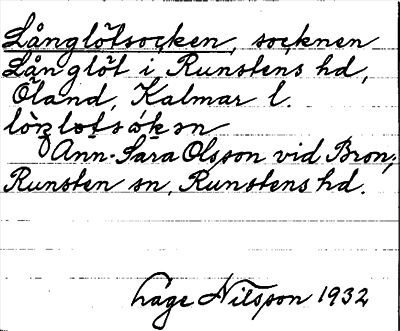 Långlötsocken, socknen
Långlöt i Runstens hd,
Öland, Kalmar l.
Ann-Sara Olsson vid Bron,
Runsten sn, Runstens hd.
Lage Nilsson 1932